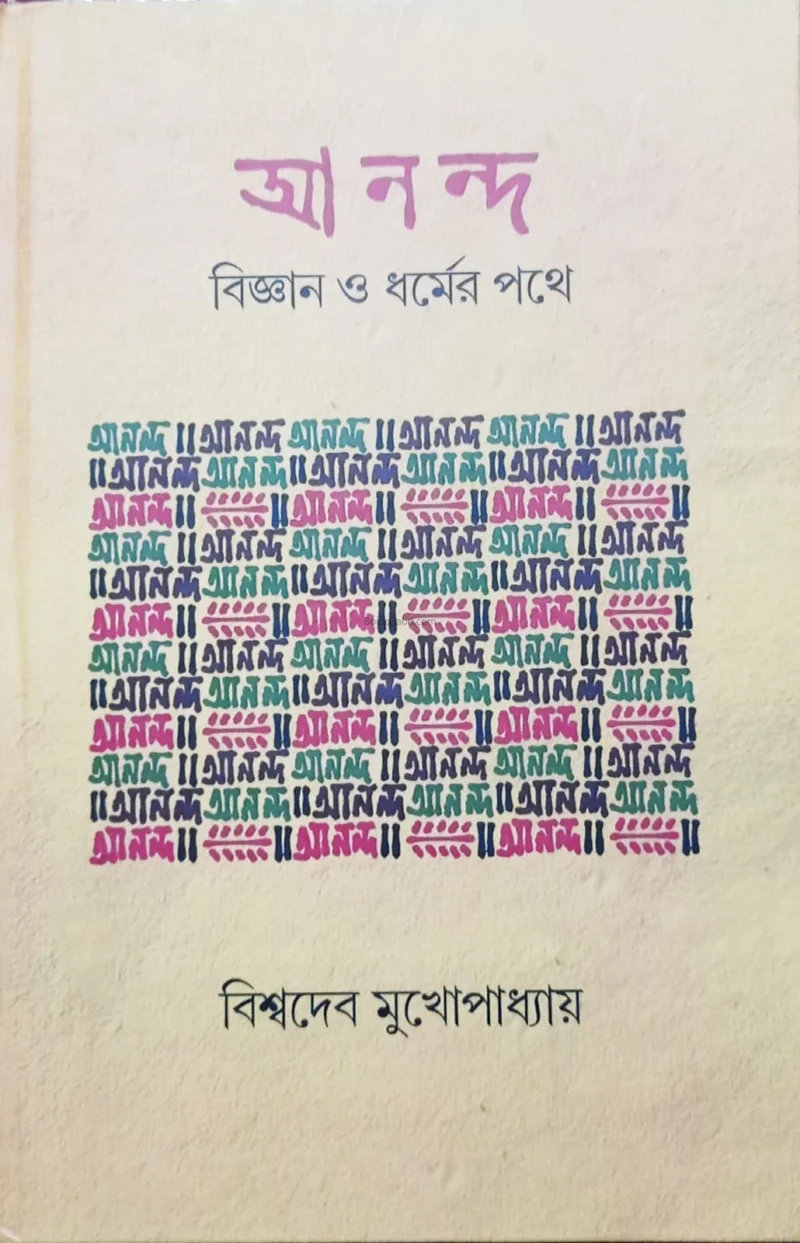 আনন্দ
বিজ্ঞান ও ধর্মের পথে
আনন্দ || আনন্দ আনন্দ || আনন্দ আনন্দ || আনন্দ
|| আনন্দ আনন্দ || আনন্দ আনন্দ || আনন্দ আনন্দ
আনন্দ || || আনন্দ || || আনন্দ || ||
আনন্দ || আনন্দ আনন্দ || আনন্দ আনন্দ || আনন্দ
|| আনন্দ আনন্দ || আনন্দ আনন্দ || আনন্দ আনন্দ
আনন্দ || || আনন্দ || || আনন্দ || ||
আনন্দ || আনন্দ আনন্দ || আনন্দ আনন্দ || আনন্দ
|| আনন্দ আনন্দ || আনন্দ আনন্দ || আনন্দ আনন্দ
আনন্দ || || আনন্দ || || আনন্দ || ||
আনন্দ || আনন্দ আনন্দ || আনন্দ আনন্দ || আনন্দ
|| আনন্দ আনন্দ || আনন্দ আনন্দ || আনন্দ আনন্দ
আনন্দ || || আনন্দ || || আনন্দ || ||
বিশ্বদেব মুখোপাধ্যায়